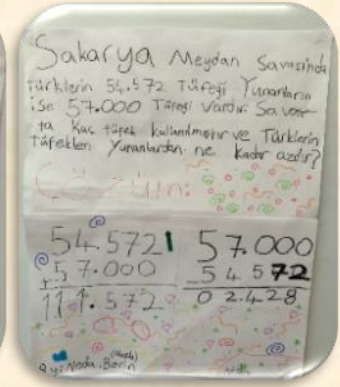 Sakarya Meydan Savaşında
Türklerin 54.572 Tüfeği Yunanların
ise 57.000 Tüfeği Vardır. Savaş-
ta kaç tüfek kullanılmıştır ve Türklerin
tüfekleri Yunanlardan ne kadar azdır?
Çözüm:
54.572
+ 57.000
111.572
57.000
- 54 572
02.428